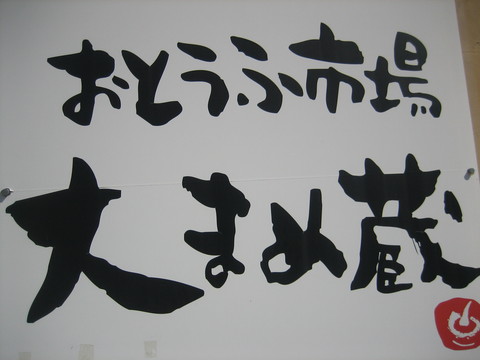 おとうふ市場
大まめ蔵